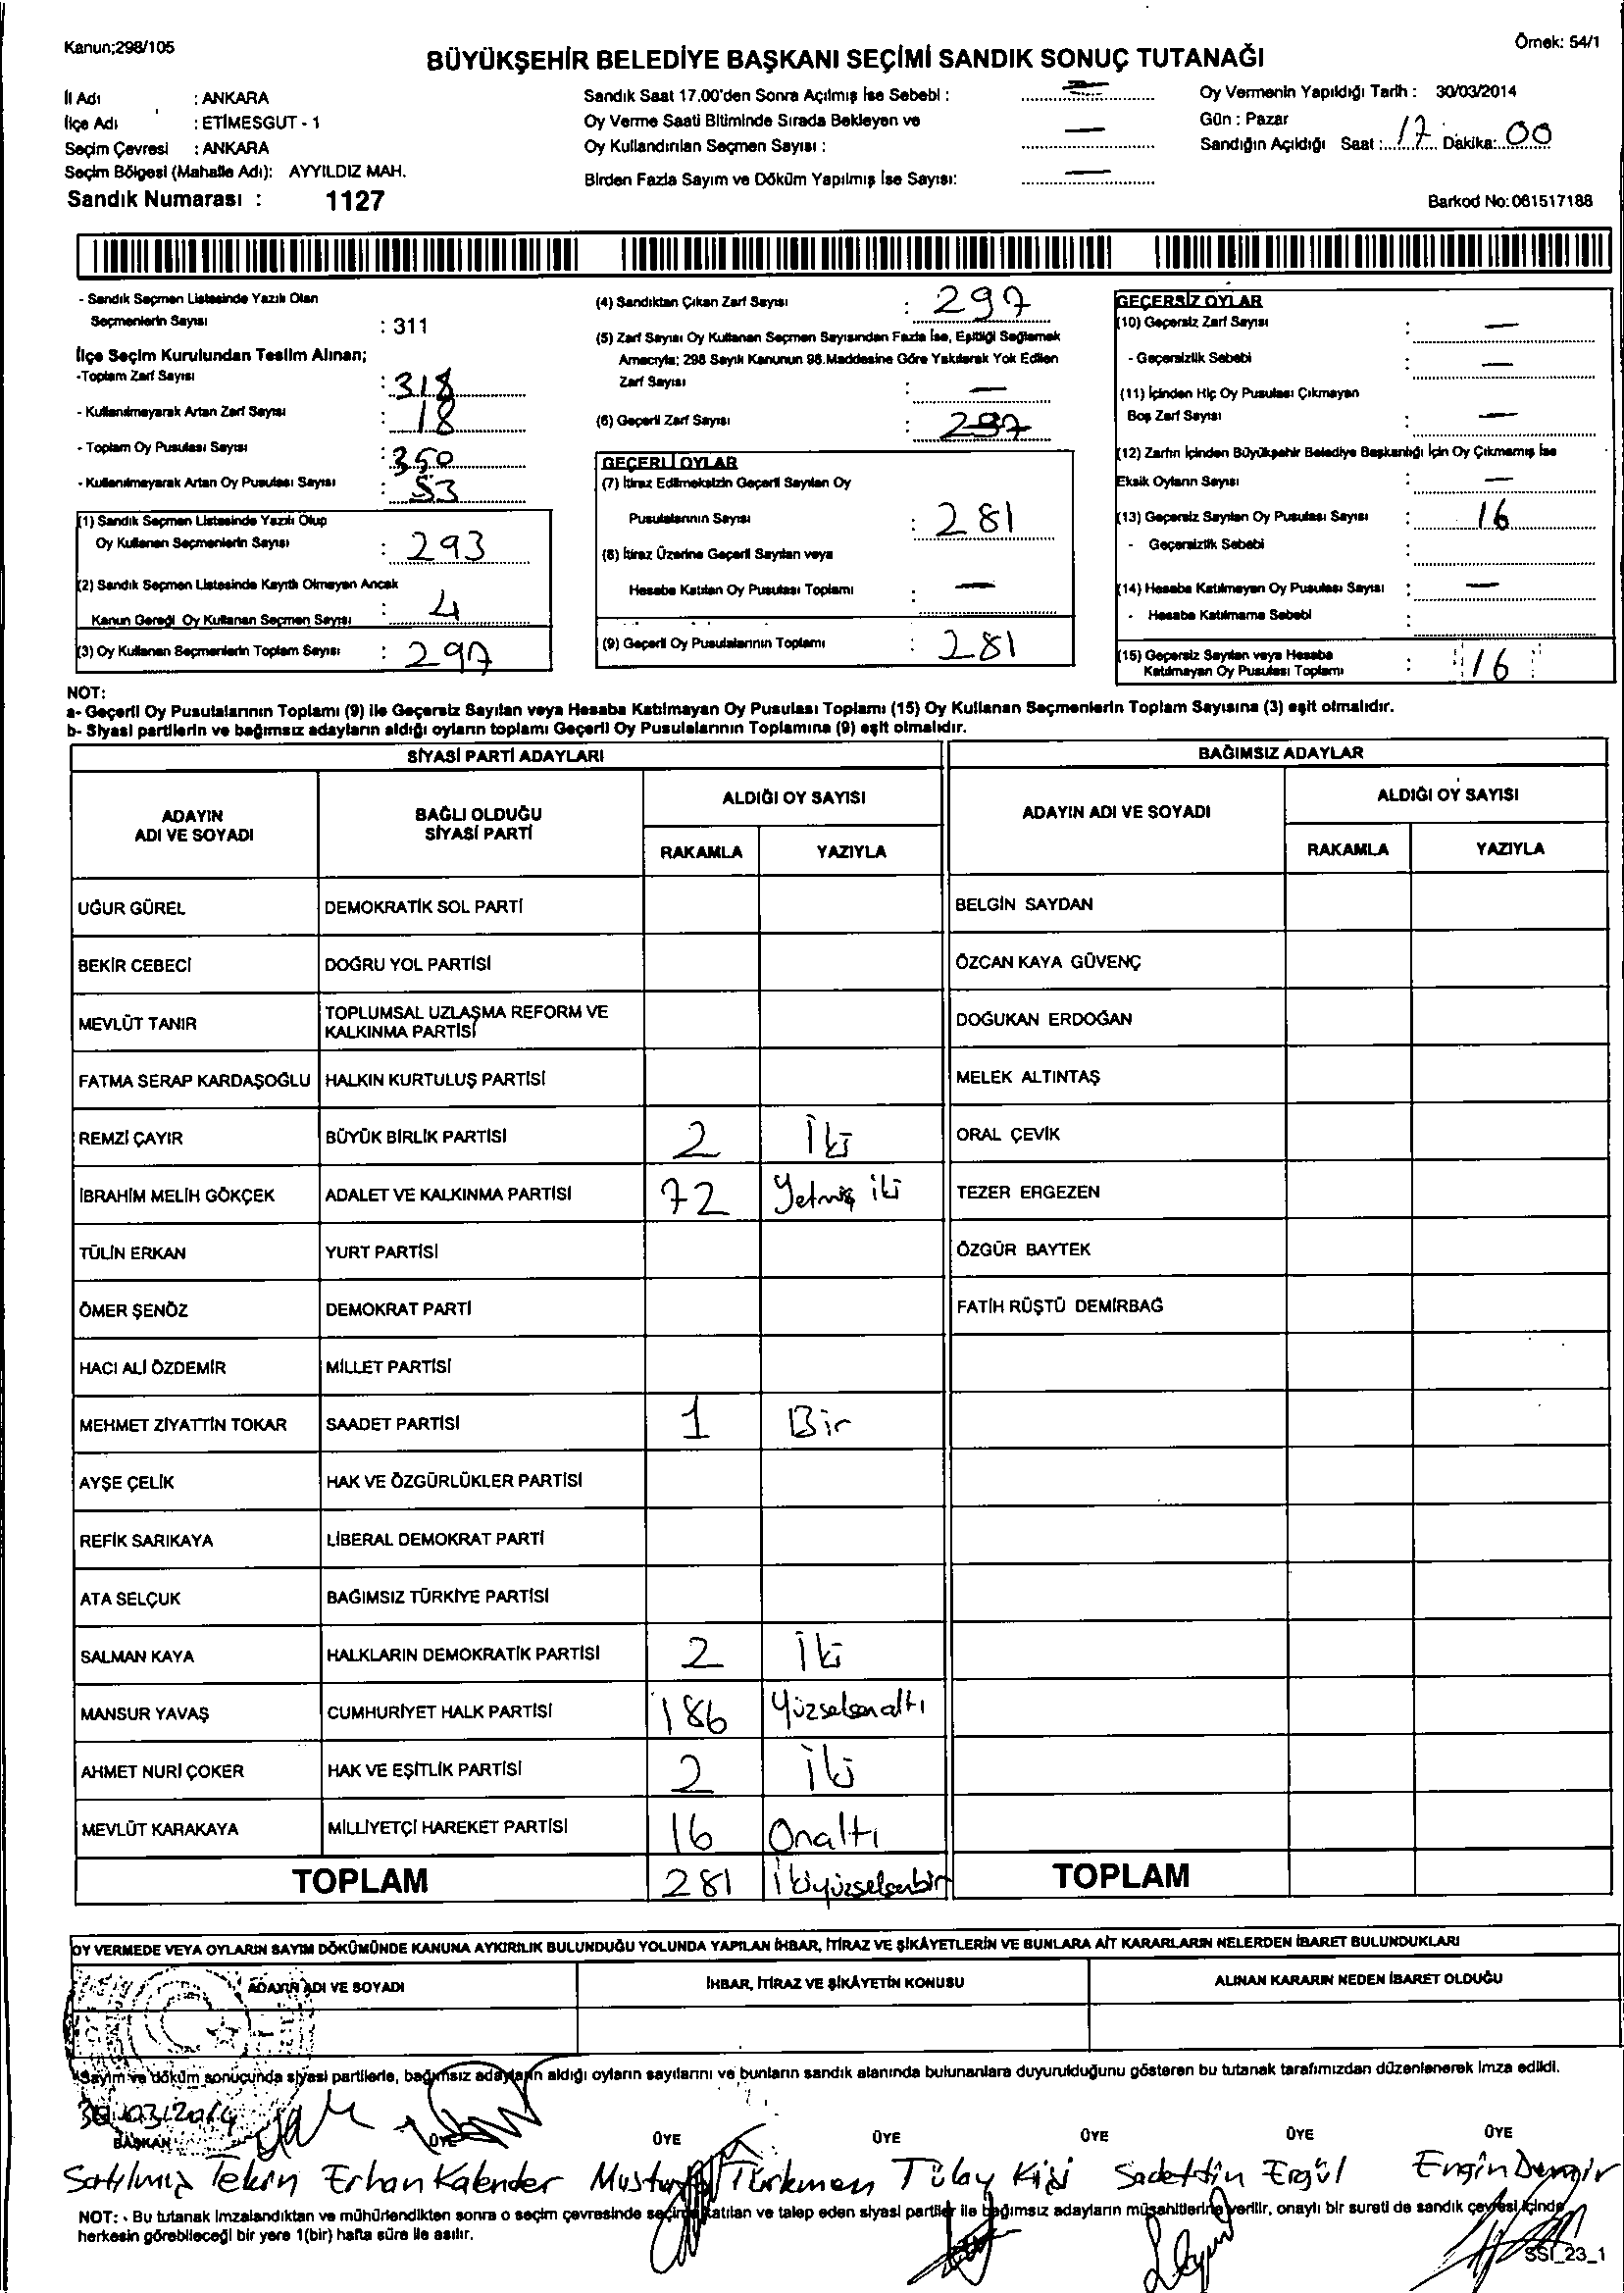 Kanun;298/105
Örnek: 54/1
BÜYÜKŞEHİR BELEDİYE BAŞKANI SEÇİMİ SANDIK SONUÇ TUTANAĞI
İl Adı : ANKARA
İlçe Adı : ETİMESGUT - 1
Seçim Çevresi : ANKARA
Seçim Bölgesi (Mahalle Adı): AYYILDIZ MAH.
Sandık Numarası : 1127
Sandık Saat 17.00'den Sonra Açılmış İse Sebebi : —
Oy Verme Saati Bitiminde Sırada Bekleyen ve
Oy Kullandırılan Seçmen Sayısı : —
Birden Fazla Sayım ve Döküm Yapılmış İse Sayısı: —
Oy Vermenin Yapıldığı Tarih : 30/03/2014
Gün : Pazar
Sandığın Açıldığı Saat : 17 Dakika: 00
Barkod No:061517188
- Sandık Seçmen Listesinde Yazılı Olan
Seçmenlerin Sayısı : 311
İlçe Seçim Kurulundan Teslim Alınan;
-Toplam Zarf Sayısı : 318
- Kullanılmayarak Artan Zarf Sayısı : 18
- Toplam Oy Pusulası Sayısı : 350
- Kullanılmayarak Artan Oy Pusulası Sayısı : 53
(1) Sandık Seçmen Listesinde Yazılı Olup
Oy Kullanan Seçmenlerin Sayısı : 293
(2) Sandık Seçmen Listesinde Kayıtlı Olmayan Ancak
Kanun Gereği Oy Kullanan Seçmen Sayısı : 4
(3) Oy Kullanan Seçmenlerin Toplam Sayısı : 297
(4) Sandıktan Çıkan Zarf Sayısı : 297
(5) Zarf Sayısı Oy Kullanan Seçmen Sayısından Fazla İse, Eşitliği Sağlamak
Amacıyla; 298 Sayılı Kanunun 98.Maddesine Göre Yakılarak Yok Edilen
Zarf Sayısı : —
(6) Geçerli Zarf Sayısı : 297
GEÇERLİ OYLAR
(7) İtiraz Edilmeksizin Geçerli Sayılan Oy
Pusulalarının Sayısı : 281
(8) İtiraz Üzerine Geçerli Sayılan veya
Hesaba Katılan Oy Pusulası Toplamı : —
(9) Geçerli Oy Pusulalarının Toplamı : 281
GEÇERSİZ OYLAR
(10) Geçersiz Zarf Sayısı : —
- Geçersizlik Sebebi : —
(11) İçinden Hiç Oy Pusulası Çıkmayan
Boş Zarf Sayısı : —
(12) Zarfın İçinden Büyükşehir Belediye Başkanlığı İçin Oy Çıkmamış İse
Eksik Oyların Sayısı : —
(13) Geçersiz Sayılan Oy Pusulası Sayısı : 16
- Geçersizlik Sebebi :
(14) Hesaba Katılmayan Oy Pusulası Sayısı : —
- Hesaba Katılmama Sebebi :
(15) Geçersiz Sayılan veya Hesaba
Katılmayan Oy Pusulası Toplamı : 16
NOT:
a- Geçerli Oy Pusulalarının Toplamı (9) ile Geçersiz Sayılan veya Hesaba Katılmayan Oy Pusulası Toplamı (15) Oy Kullanan Seçmenlerin Toplam Sayısına (3) eşit olmalıdır.
b- Siyasi partilerin ve bağımsız adayların aldığı oyların toplamı Geçerli Oy Pusulalarının Toplamına (9) eşit olmalıdır.
SİYASİ PARTİ ADAYLARI
BAĞIMSIZ ADAYLAR
ADAYIN ADI VE SOYADI
BAĞLI OLDUĞU SİYASİ PARTİ
ALDIĞI OY SAYISI
RAKAMLA YAZIYLA
ADAYIN ADI VE SOYADI
ALDIĞI OY SAYISI
RAKAMLA YAZIYLA
UĞUR GÜREL DEMOKRATİK SOL PARTİ BELGİN SAYDAN
BEKİR CEBECİ DOĞRU YOL PARTİSİ ÖZCAN KAYA GÜVENÇ
MEVLÜT TANIR TOPLUMSAL UZLAŞMA REFORM VE KALKINMA PARTİSİ DOĞUKAN ERDOĞAN
FATMA SERAP KARDAŞOĞLU HALKIN KURTULUŞ PARTİSİ MELEK ALTINTAŞ
REMZİ ÇAYIR BÜYÜK BİRLİK PARTİSİ 2 İki ORAL ÇEVİK
İBRAHİM MELİH GÖKÇEK ADALET VE KALKINMA PARTİSİ 72 Yetmiş iki TEZER ERGEZEN
TÜLİN ERKAN YURT PARTİSİ ÖZGÜR BAYTEK
ÖMER ŞENÖZ DEMOKRAT PARTİ FATİH RÜŞTÜ DEMİRBAĞ
HACI ALİ ÖZDEMİR MİLLET PARTİSİ
MEHMET ZİYATTİN TOKAR SAADET PARTİSİ 1 Bir
AYŞE ÇELİK HAK VE ÖZGÜRLÜKLER PARTİSİ
REFİK SARIKAYA LİBERAL DEMOKRAT PARTİ
ATA SELÇUK BAĞIMSIZ TÜRKİYE PARTİSİ
SALMAN KAYA HALKLARIN DEMOKRATİK PARTİSİ 2 İki
MANSUR YAVAŞ CUMHURİYET HALK PARTİSİ 186 Yüzseksenaltı
AHMET NURİ ÇOKER HAK VE EŞİTLİK PARTİSİ 2 İki
MEVLÜT KARAKAYA MİLLİYETÇİ HAREKET PARTİSİ 16 Onaltı
TOPLAM 281 İkiyüzseksenbir TOPLAM
OY VERMEDE VEYA OYLARIN SAYIM DÖKÜMÜNDE KANUNA AYKIRILIK BULUNDUĞU YOLUNDA YAPILAN İHBAR, İTİRAZ VE ŞİKÂYETLERİN VE BUNLARA AİT KARARLARIN NELERDEN İBARET BULUNDUKLARI
ADAYIN ADI VE SOYADI İHBAR, İTİRAZ VE ŞİKÂYETİN KONUSU ALINAN KARARIN NEDEN İBARET OLDUĞU
Sayım ve döküm sonucunda siyasi partilerle, bağımsız adayların aldığı oyların sayılarını ve bunların sandık alanında bulunanlara duyurulduğunu gösteren bu tutanak tarafımızdan düzenlenerek imza edildi.
30.03.2014
BAŞKAN ÜYE ÜYE ÜYE ÜYE ÜYE ÜYE
Satılmış Tekin Erhan Kalender Mustafa Türkmen Tülay Kişi Sadettin Ergül Engin Demir
NOT: - Bu tutanak imzalandıktan ve mühürlendikten sonra o seçim çevresinde seçime katılan ve talep eden siyasi partiler ile bağımsız adayların müşahitlerine verilir, onaylı bir sureti de sandık çevresi içinde
herkesin görebileceği bir yere 1(bir) hafta süre ile asılır.
SSI_23_1